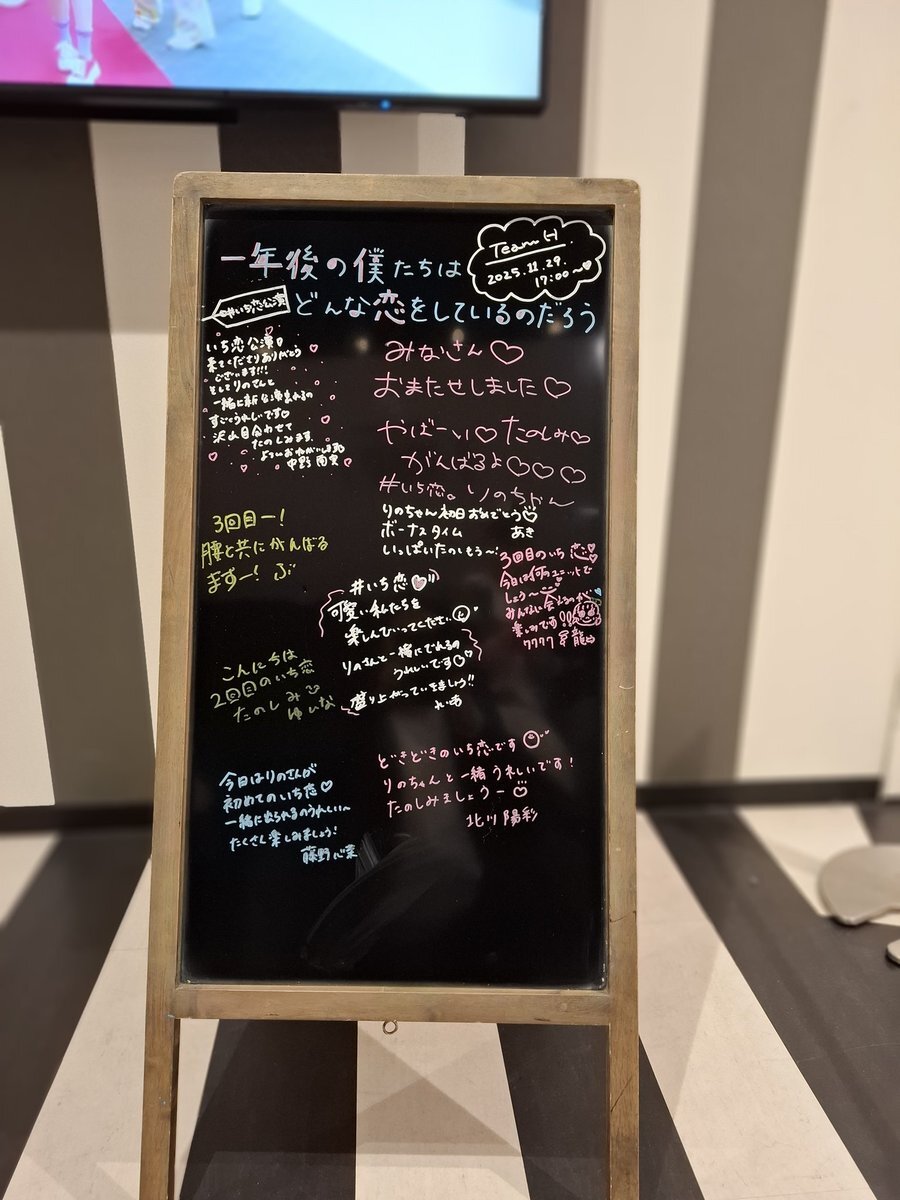 一年後の僕たちは
どんな恋をしているのだろう
Team H
2025.11.29.
17:00~
#いち恋公演
いち恋公演
来てくださりありがとう
ございます!!!
そしてりのさんと
一緒に新公演出れるの
すごくうれしいです
沢山目合わせて
たのしみます
よろしくおねがいします
中野
みなさん♡
おまたせしました♡
やばーい♡たのしみ♡
がんばるよ♡♡♡
#いち恋。りのちゃん
りのちゃん初日おめでとう
ボーナスタイム
いっぱいたのしもう〜
あき
3回目ー!
腰と共にがんばる
ますー!
3回目のいち恋
今日は何のユニットで
しょう〜
みんなに会えるのが
楽しみです!!
#いち恋
可愛い私たちを
楽しんでいってください
りのさんと一緒にでれるの
うれしいです♡
盛り上がっていきましょう!!
れいあ
こんにちは
2回目のいち恋
たのしみ
ゆいな
今日はりのさんが
初めてのいち恋♡
一緒に出られるのうれしい〜
たくさん楽しみましょう!
藤野心菜
どきどきのいち恋です
りのちゃんと一緒うれしいです!
たのしみましょうー
北川陽彩